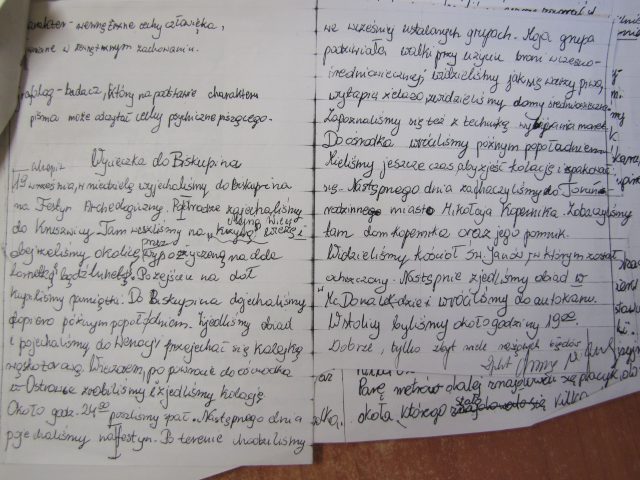 charakter - wewnętrzne cechy człowieka,
w zewnętrznym zachowaniu.
grafolog - badacz, który na podstawie charakteru
pisma może odczytać cechy psychiczne piszącego.
Wycieczka do Biskupina
19 września, w niedzielę wyjechaliśmy do Biskupina
na Festyn Archeologiczny. Po drodze zajechaliśmy
do Kruszwicy. Tam weszliśmy na wieżę i
obejrzeliśmy okolicę przez wypożyczoną na dole
lornetkę bądź lunetę. Po zejściu na dół
kupiliśmy pamiątki. Do Biskupina dojechaliśmy
dopiero późnym popołudniem. Zjedliśmy obiad
i pojechaliśmy do Wenecji przejechać się kolejką
wąskotorową. Wieczorem, po powrocie do ośrodka
w zrobiliśmy i zjedliśmy kolację
Około godz. 24⁰⁰ poszliśmy spać. Następnego dnia
pojechaliśmy na festyn. Po terenie chodziliśmy
we wcześniej ustalonych grupach. Moja grupa
podziwiała walki przy użyciu broni wczesno-
średniowiecznej widzieliśmy jak się warzy piwo,
wytapia żelazo, zwiedziliśmy domy średniowieczne
Zapoznaliśmy się też z techniką wybijania monet.
Do ośrodka wróciliśmy późnym popołudniem.
Mieliśmy jeszcze czas aby zjeść kolację i spakować
się. Następnego dnia zahaczyliśmy do Torunia
rodzinnego miasto Mikołaja Kopernika. Zobaczyliśmy
tam dom kopernika oraz jego pomnik.
Widzieliśmy kościół św. Janów w którym został
ochrzczony. Następnie zjedliśmy obiad w
"Mc Donald-dzie" i wróciliśmy do autokaru.
W stolicy byliśmy około godziny 19⁰⁰.
Dobrze, tylko zbyt wiele błędów
Parę metrów dalej znajdował się placyk,
około którego stało kilka